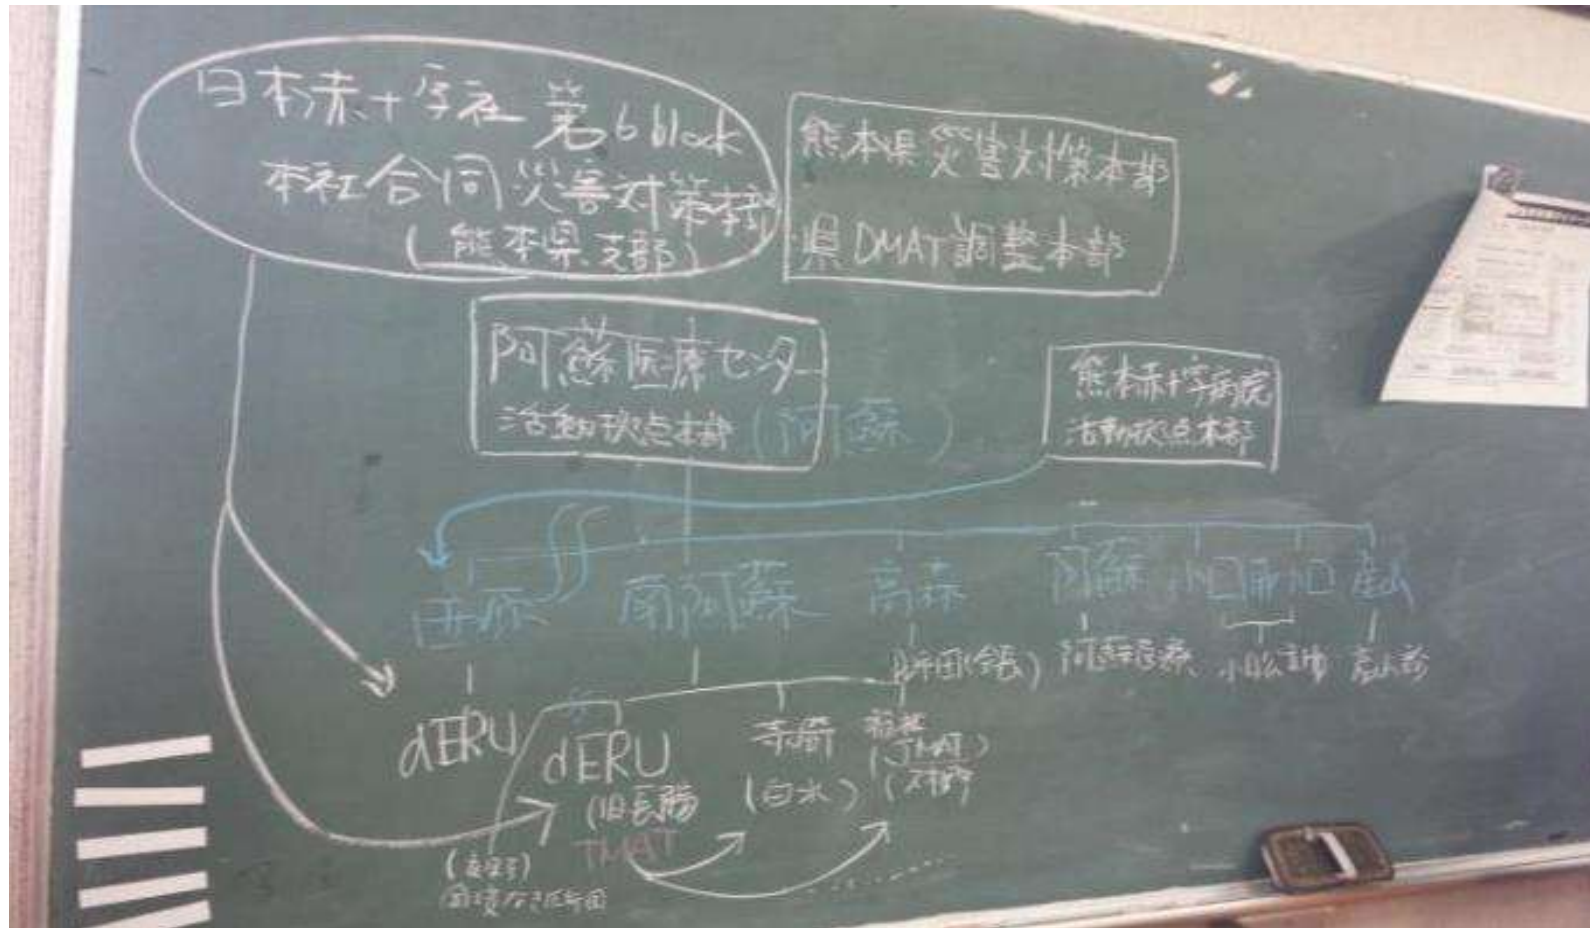 日本赤十字社 第6block
本社合同災害対策本部
(熊本県支部)
熊本県災害対策本部
県DMAT調整本部
阿蘇医療センター
活動拠点本部
(阿蘇)
熊本赤十字病院
活動拠点本部
西原
南阿蘇
高森
阿蘇
小国
南小国
産山
阿蘇医療
dERU
dERU
(旧長陽
TMAT
(白水)
(JMAT)